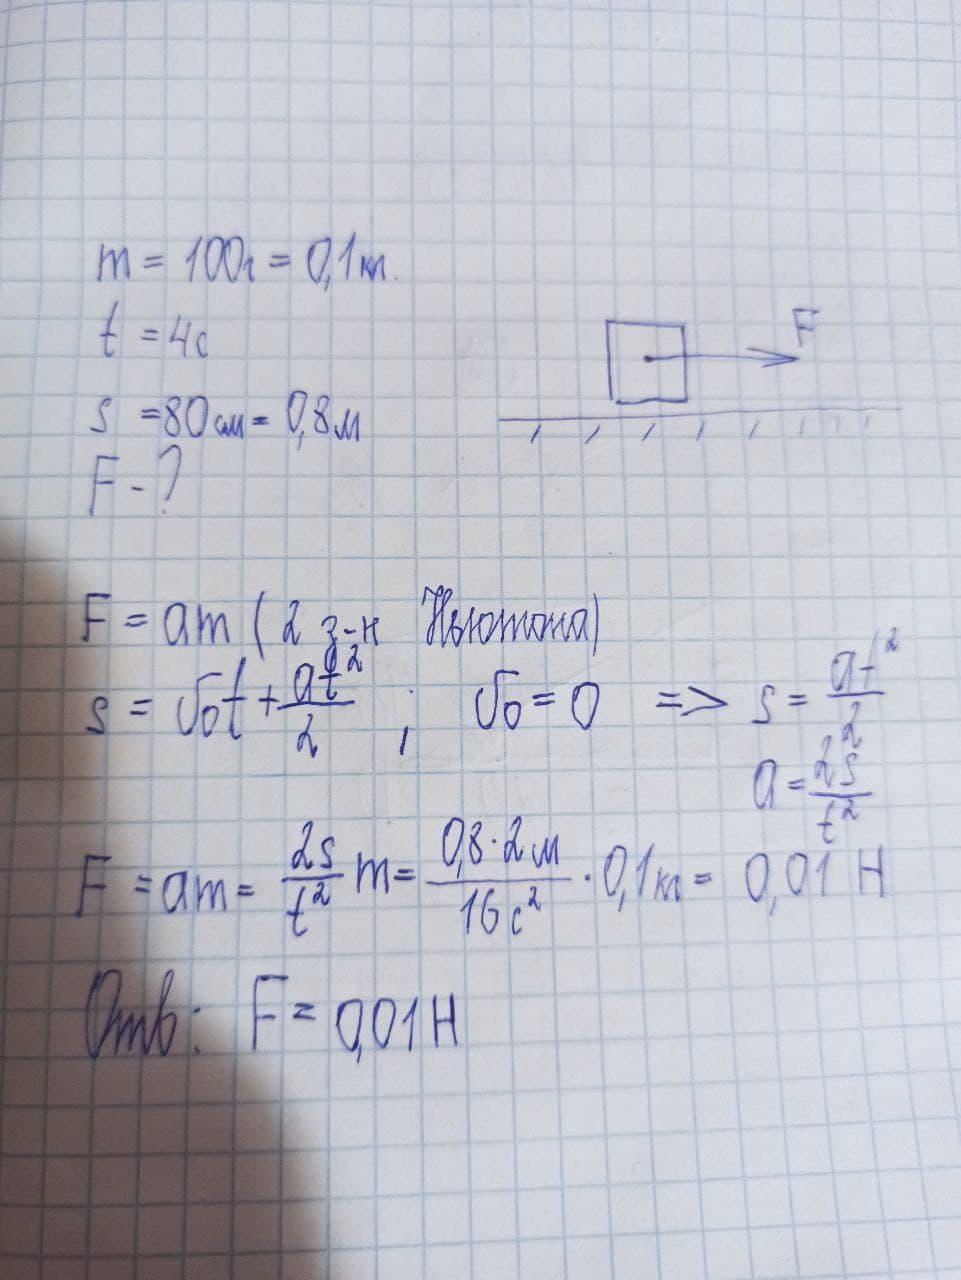 m = 100г = 0,1 кг.
t = 4с
s = 80 см = 0,8 м
F - ?
F
F = am (2 з-н Ньютона)
s = v₀t + at²/2 ; v₀ = 0 => s = at²/2
a = 2s/t²
F = am = 2s/t² m = 0,8·2м/16с² · 0,1 кг = 0,01 Н
Отв: F = 0,01 Н